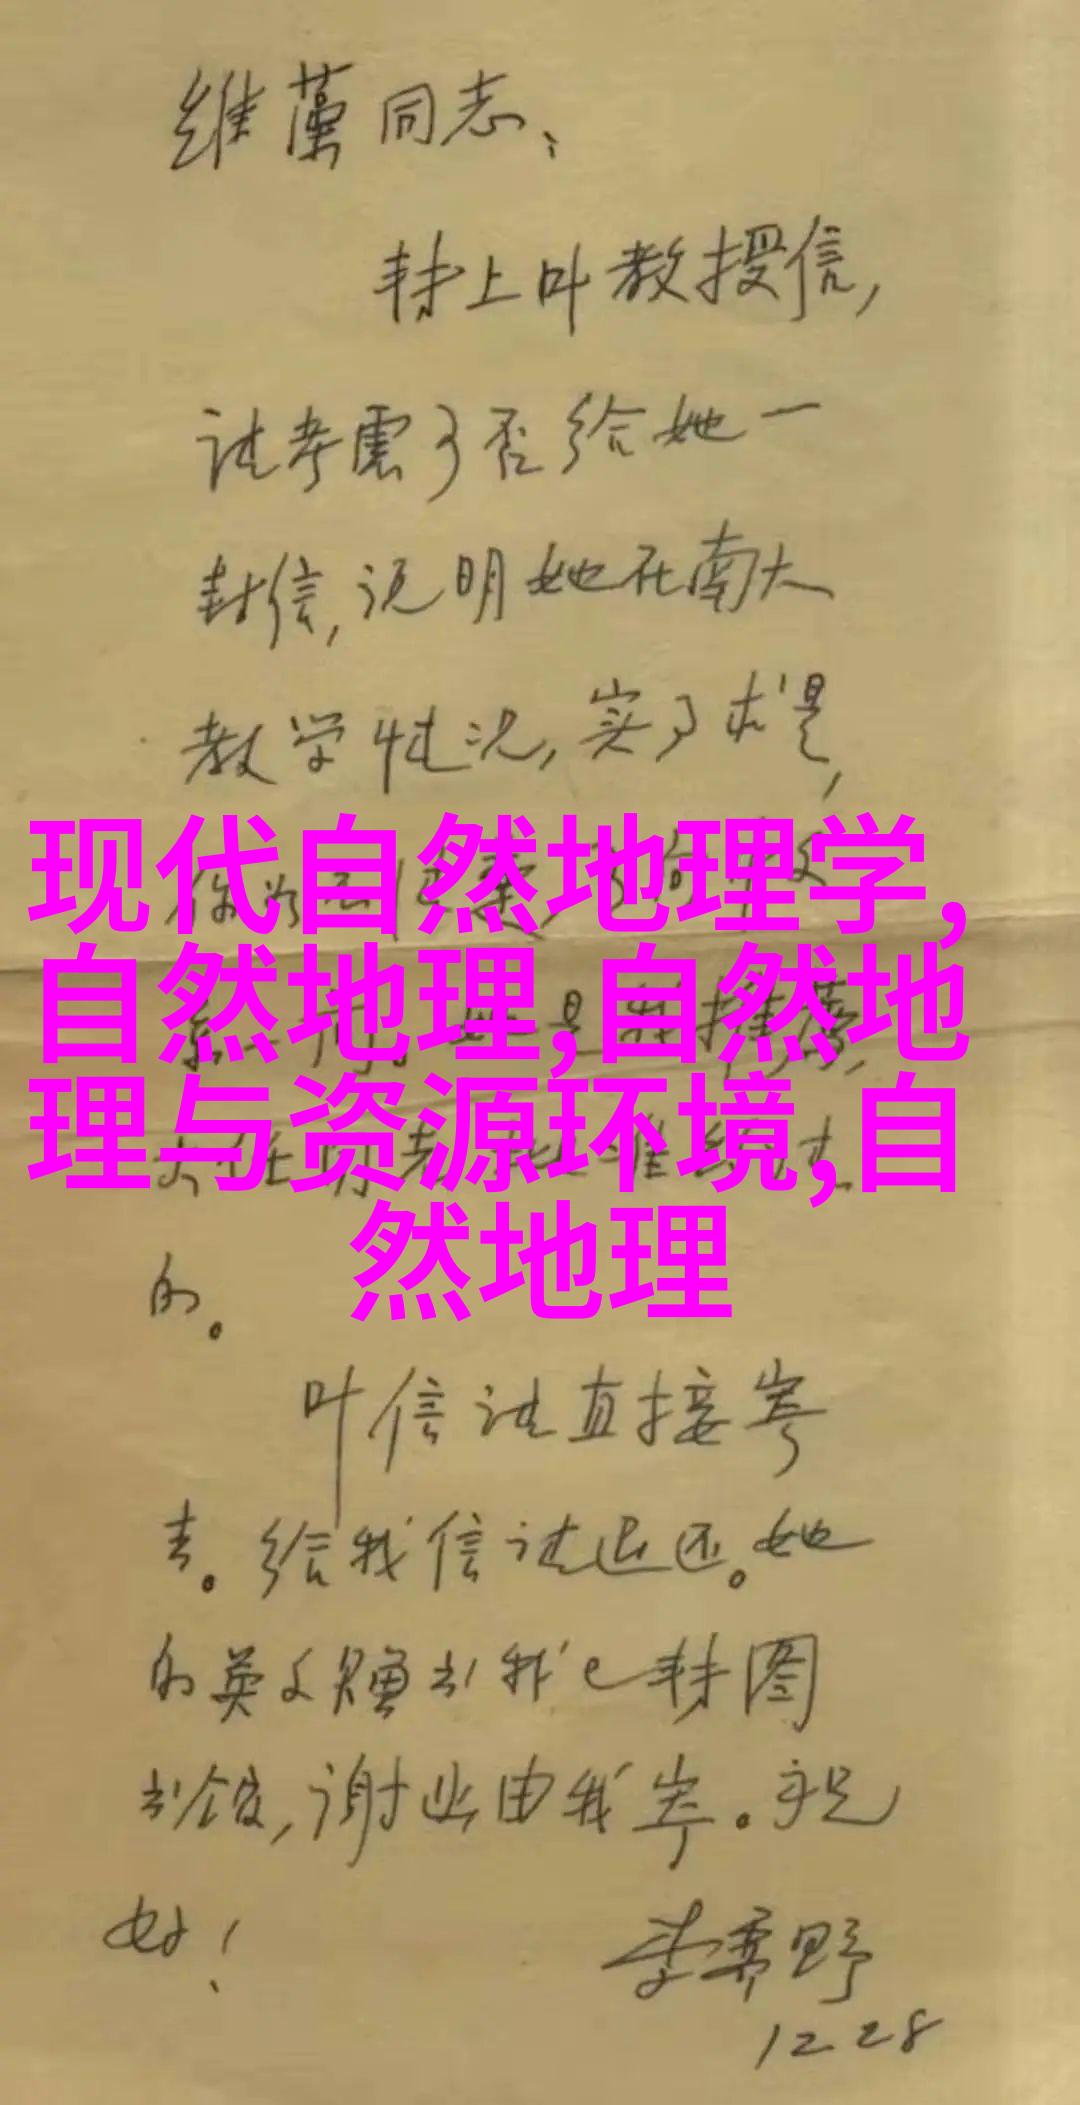 维藻同志、
转上叶教授信,
请考虑可否给她一
封信,说明她在南大
教学情况,实事求是,
现代自然地理学,
自然地理,自然地
理与资源环境,自
然地理
的。
叶信请直接寄
去。给我信请退还。她
的英文赠书我已转图
书馆,谢必由我寄。祝
好!
李霁野
12 28